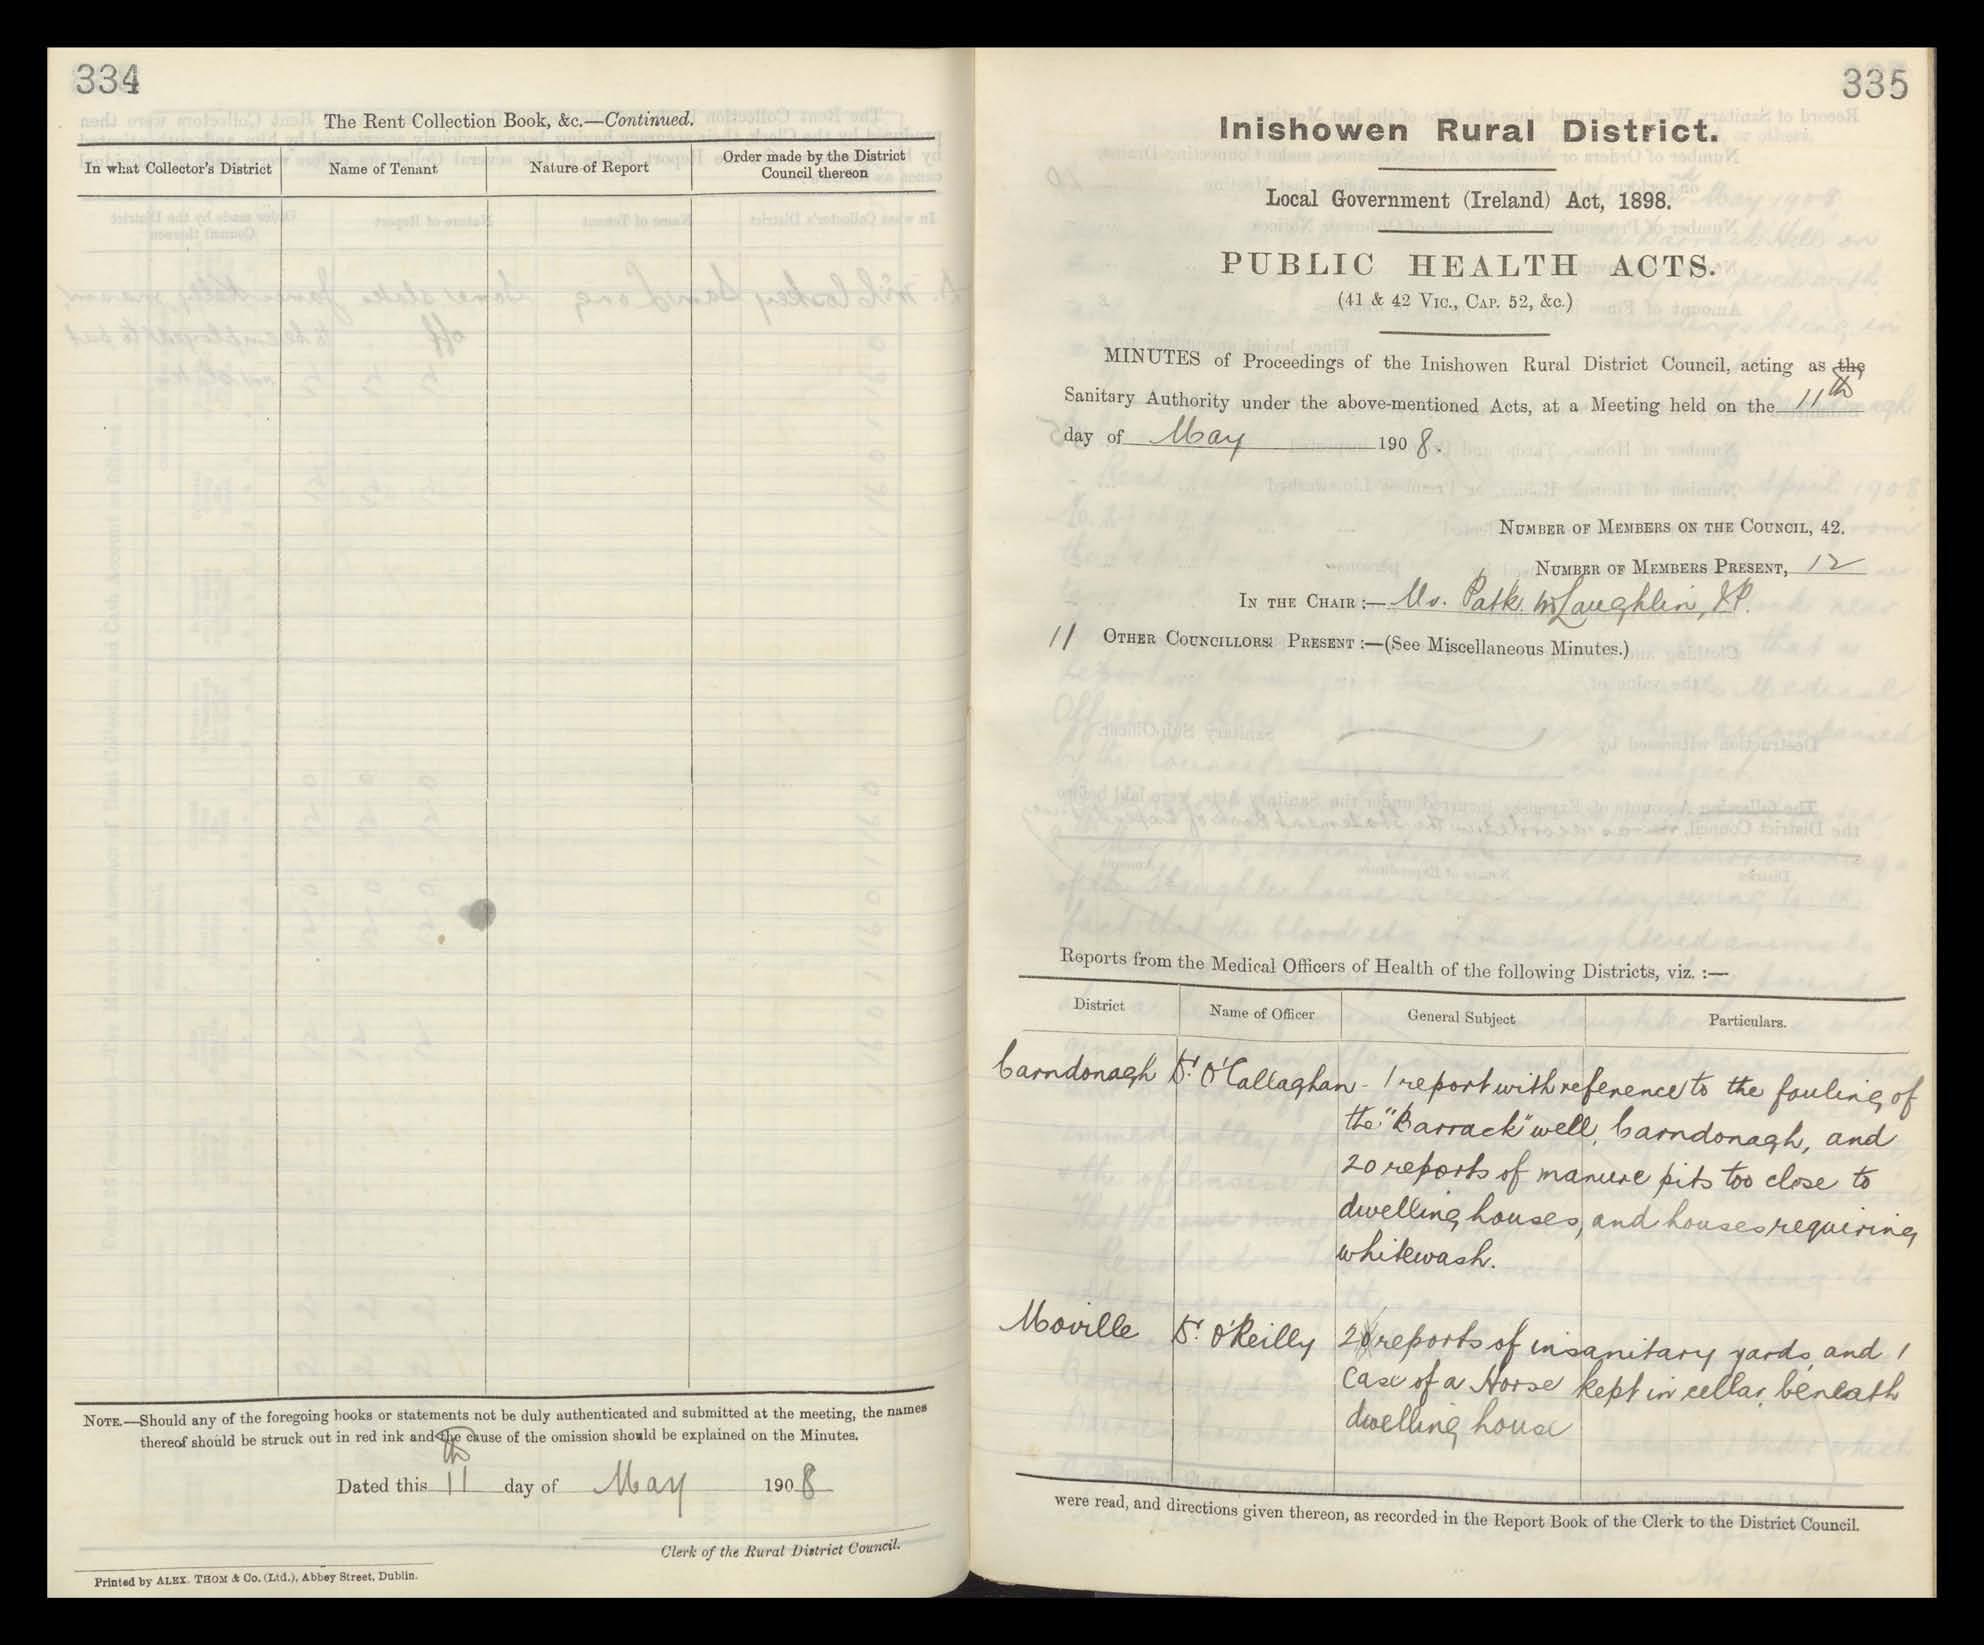 334
The Rent Collection Book, &c.—Continued.
In what Collector's District
Name of Tenant
Nature of Report
Order made by the District
Council thereon
NOTE.—Should any of the foregoing books or statements not be duly authenticated and submitted at the meeting, the names
thereof should be struck out in red ink and the cause of the omission should be explained on the Minutes.
Dated this 11th day of May 1908
Clerk of the Rural District Council.
Printed by ALEX. THOM & Co. (Ltd.), Abbey Street, Dublin.
335
Inishowen Rural District.
Local Government (Ireland) Act, 1898.
PUBLIC HEALTH ACTS.
(41 & 42 VIC., CAP. 52, &c.)
MINUTES of Proceedings of the Inishowen Rural District Council, acting as the
Sanitary Authority under the above-mentioned Acts, at a Meeting held on the 11th
day of May 1908.
NUMBER OF MEMBERS ON THE COUNCIL, 42.
NUMBER OF MEMBERS PRESENT, 12
IN THE CHAIR :— Mr. Patk. McLaughlin, J.P.
11 OTHER COUNCILLORS PRESENT :—(See Miscellaneous Minutes.)
Reports from the Medical Officers of Health of the following Districts, viz. :—
District
Name of Officer
General Subject
Particulars.
Carndonagh Dr. O'Callaghan - 1 report with reference to the fouling of
the "Barrack" well, Carndonagh, and
20 reports of manure pits too close to
dwelling houses, and houses requiring
whitewash.
Moville Dr. O'Reilly 2 reports of insanitary yards, and 1
Case of a Horse kept in cellar, beneath
dwelling house
were read, and directions given thereon, as recorded in the Report Book of the Clerk to the District Council.